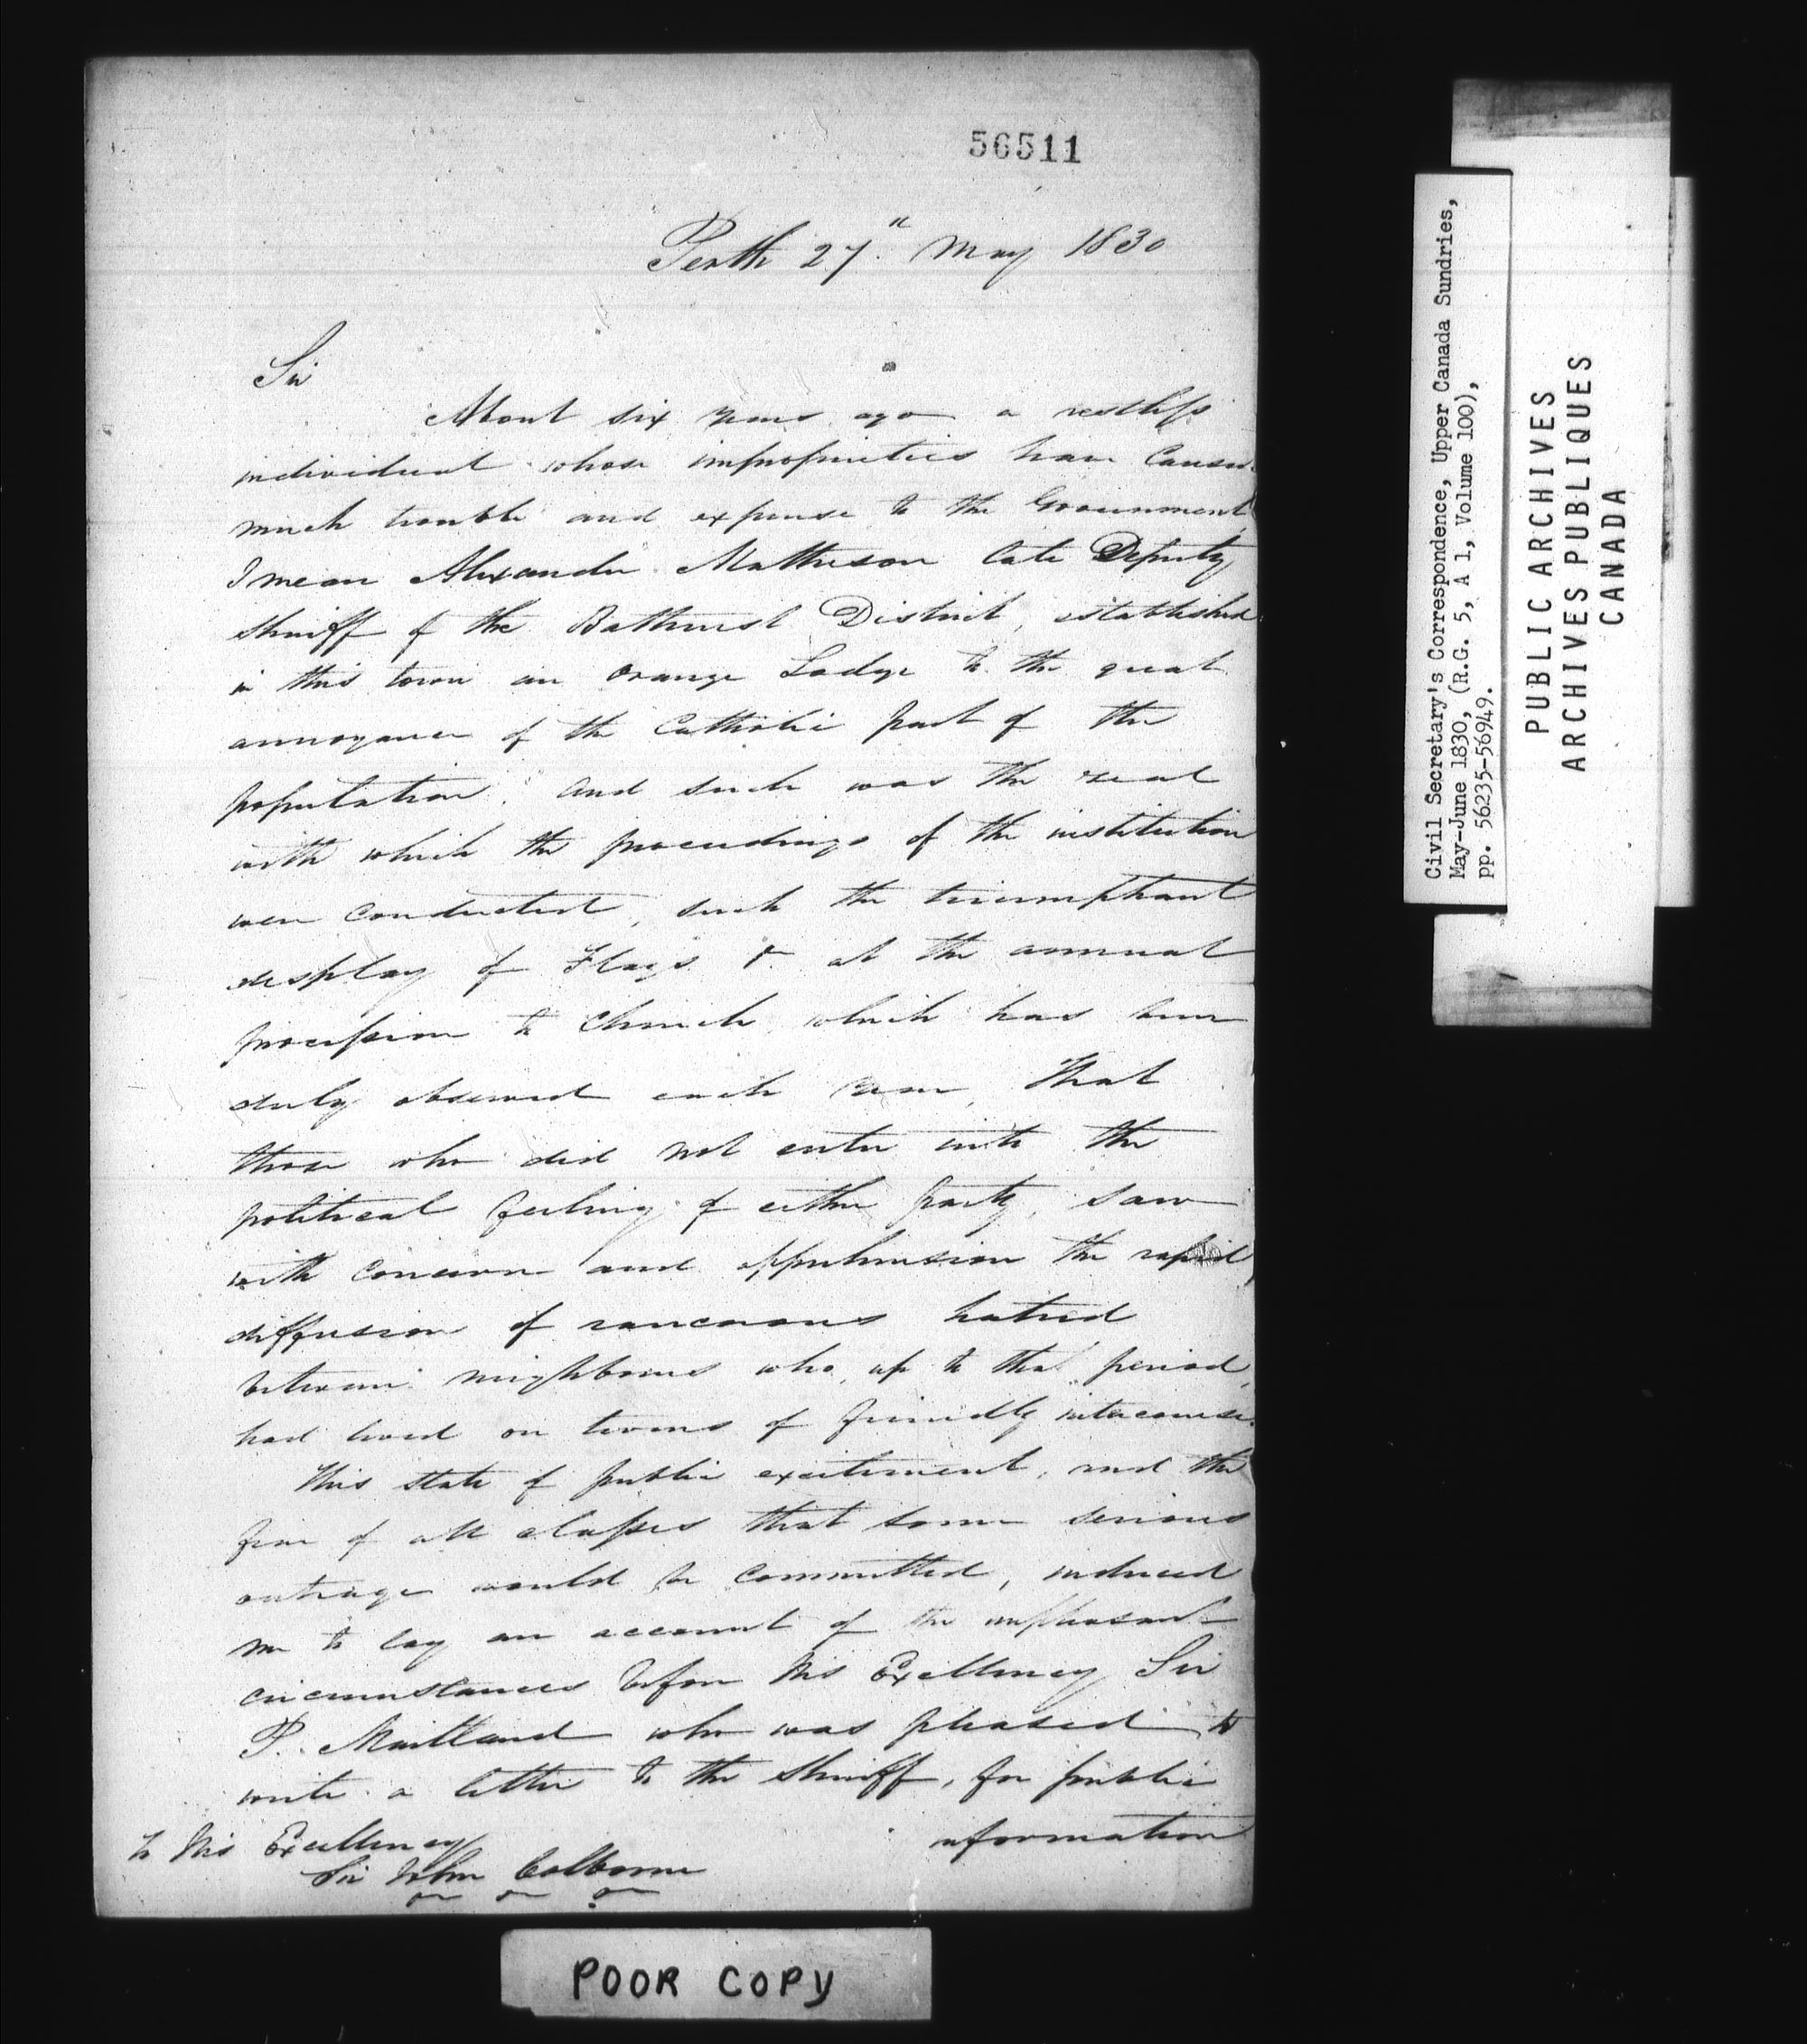 56511
Perth 27th May 1830
Sir
About six years ago a restless
individual whose improprieties have caused
much trouble and expense to the Government
I mean Alexander Matheson late Deputy
Sheriff of the Bathurst District, established
in this town an Orange Lodge to the great
annoyance of the Catholic part of the
population. And such was the zeal
with which the proceedings of the institution
were conducted, such the triumphant
display of Flags & at the annual
procession to Church which has been
duly observed each year, that
those who did not enter into the
political feeling of either party, saw
with concern and apprehension the rapid
diffusion of rancorous hatred
between neighbours who, up to that period,
had lived on terms of friendly intercourse.
This state of public excitement, and the
fear of all classes that some serious
outrage would be committed, induced
me to lay an account of the unpleasant
circumstances before His Excellency Sir
P. Maitland who was pleased to
write a letter to the Sheriff, for public
information
To His Excellency
Sir John Colborne
Civil Secretary's Correspondence, Upper Canada Sundries,
May-June 1830, (R.G. 5, A 1, Volume 100),
pp. 56235-56949.
PUBLIC ARCHIVES
ARCHIVES PUBLIQUES
CANADA
POOR COPY